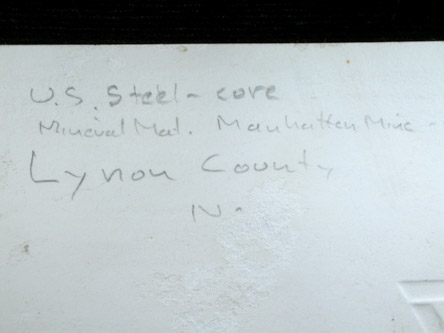 U.S. Steel - core
Mineral Mat. Manhatten Mine -
Lynon County
N.